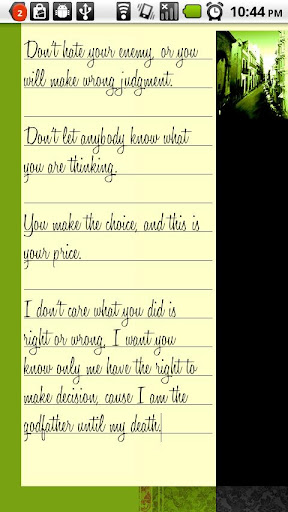 2
10:44 PM
Don't hate your enemy, or you
will make wrong judgment.
Don't let anybody know what
you are thinking.
You make the choice, and this is
your price.
I don't care what you did is
right or wrong, I want you
know only me have the right to
make decision, cause I am the
godfather until my death.